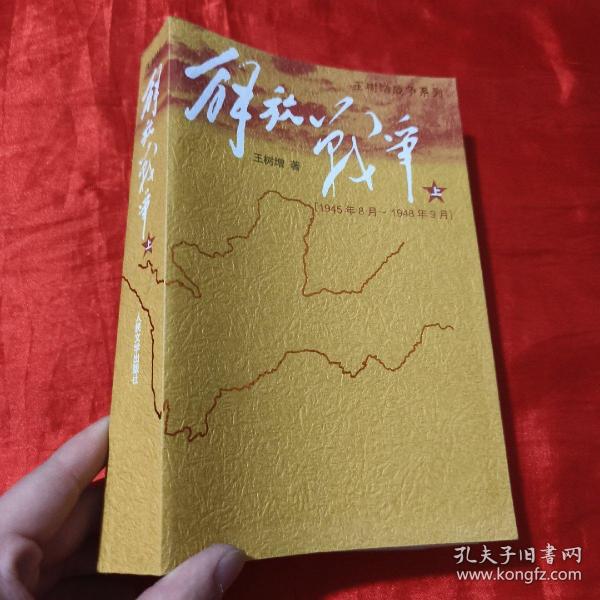 王树增战争系列
解放战争
王树增 著
上
[1945年8月~1948年9月]
解放战争
上
人民文学出版社
孔夫子旧书网
www.kongfz.com